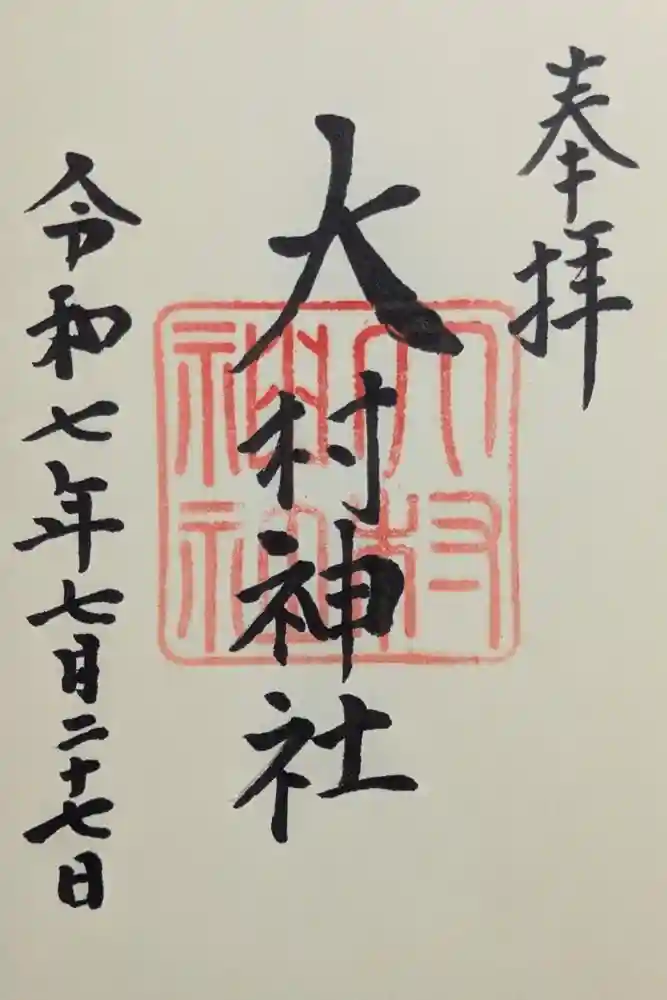 奉拝
大村神社
大村神社
令和七年七月二十七日